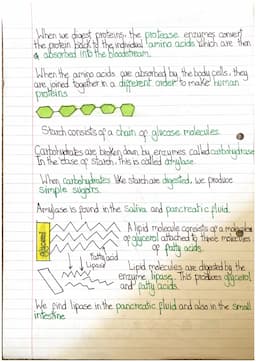 When we digest proteins, the protease enzymes convert
the protein back to the individual amino acids which are then
absorbed into the bloodstream.
When the amino acids are absorbed by the body cells, they
are joined together in a different order to make human
proteins
Starch consists of a chain of glucose molecules.
Carbohydrates are broken down by enzymes called carbohydrase
In the case of starch, this is called amylase.
When carbohydrates like starch are digested, we produce
simple sugars.
Amylase is found in the Saliva and pancreatic fluid.
glycerol
Fatty acid
Lipase
A lipid molecule consists of a molecule
of glycerol attached to three molecules
of fatty acids.
Lipid molecules are digested by the
enzyme lipase. This produces glycerol
and fatty acids.
We find lipase in the pancreatic fluid and also in the small
intestine